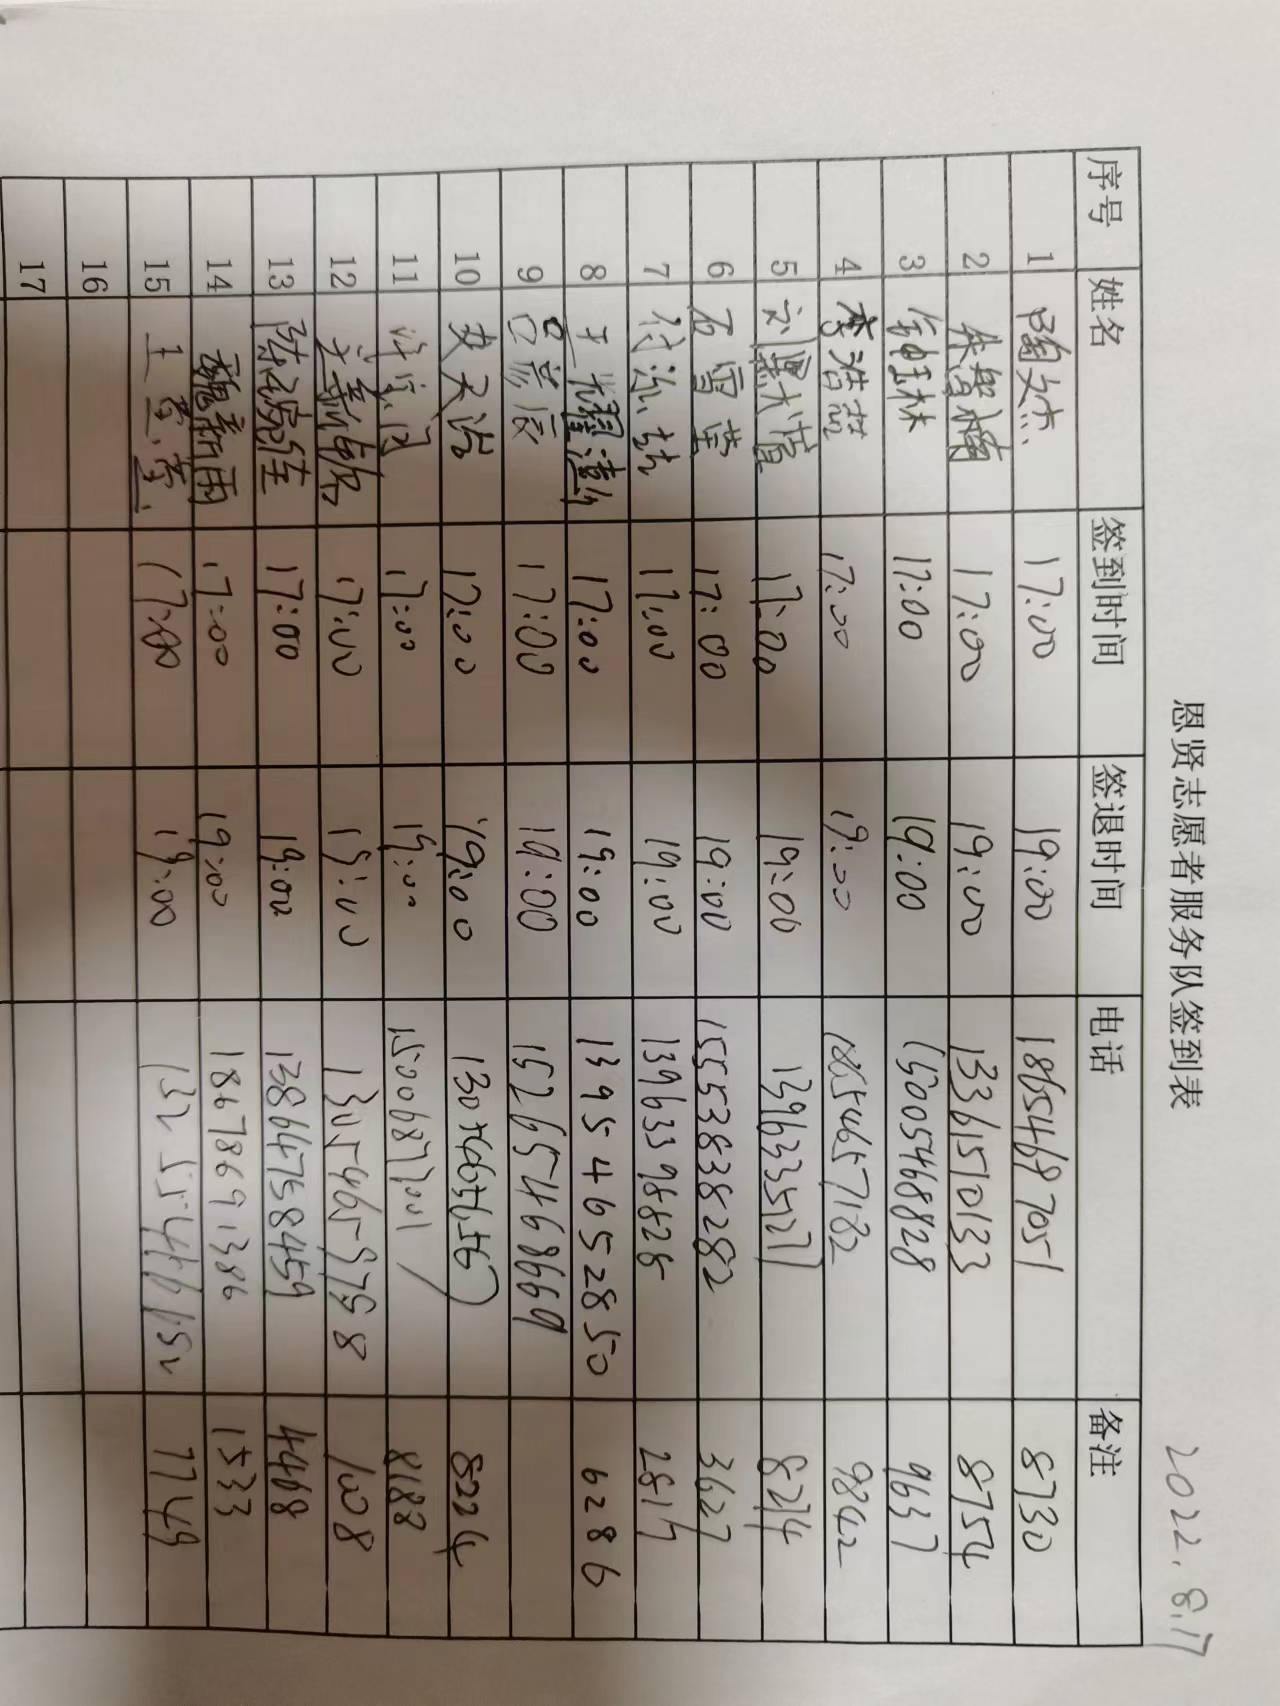 恩贤志愿者服务队签到表
2022.8.17
序号 姓名 签到时间 签退时间 电话 备注
1 陶文杰 17:00 19:00 18654687051 8730
2 17:00 19:00 13361510133 8754
3 17:00 19:00 15005468828 9637
4 李浩然 17:00 19:00 18554657182 9842
5 17:00 19:00 13963335127 8214
6 石雪莹 17:00 19:00 15553838282 3627
7 17:00 19:00 13963398828 2817
8 王耀 17:00 19:00 13954652850 6286
9 吕彦辰 17:00 19:00 15265468669
10 17:00 19:00 8224
11 17:00 19:00 15006873001 8188
12 17:00 19:00 13054659798
13 17:00 19:00 13864758459 4468
14 魏新雨 17:00 19:00 18678691386 1533
15 17:00 19:00 7749
16
17